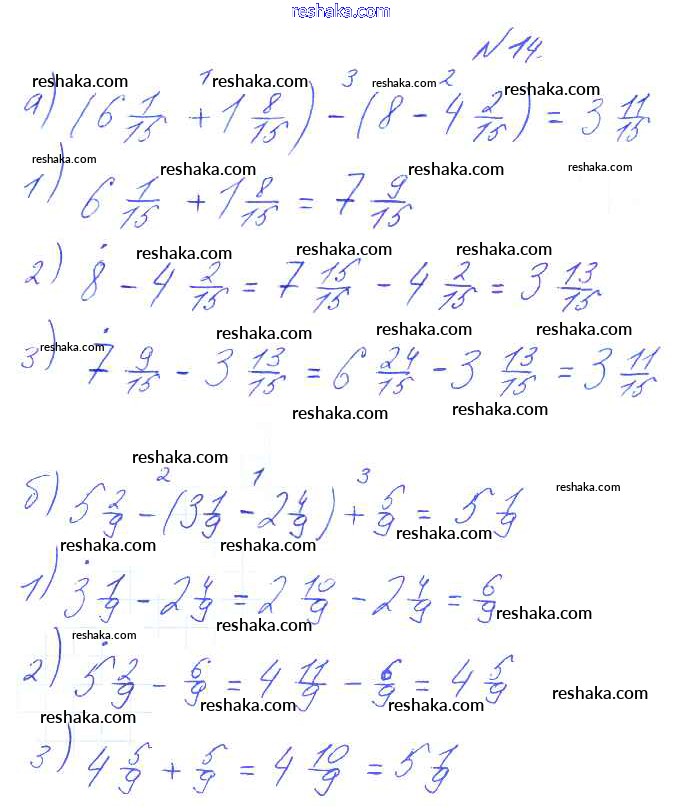 reshaka.com
N 14.
reshaka.com 1 reshaka.com 3 reshaka.com 2 reshaka.com
а) (6 1/15 + 1 8/15) - (8 - 4 2/15) = 3 11/15
reshaka.com reshaka.com reshaka.com reshaka.com
1) 6 1/15 + 1 8/15 = 7 9/15
reshaka.com reshaka.com reshaka.com
2) 8 - 4 2/15 = 7 15/15 - 4 2/15 = 3 13/15
reshaka.com reshaka.com reshaka.com reshaka.com
3) 7 9/15 - 3 13/15 = 6 24/15 - 3 13/15 = 3 11/15
reshaka.com reshaka.com
reshaka.com
2 1 3 reshaka.com
б) 5 2/9 - (3 1/9 - 2 4/9) + 5/9 = 5 1/9
reshaka.com reshaka.com reshaka.com
1) 3 1/9 - 2 4/9 = 2 10/9 - 2 4/9 = 6/9
reshaka.com reshaka.com reshaka.com
2) 5 2/9 - 6/9 = 4 11/9 - 6/9 = 4 5/9
reshaka.com reshaka.com reshaka.com reshaka.com
3) 4 5/9 + 5/9 = 4 10/9 = 5 1/9